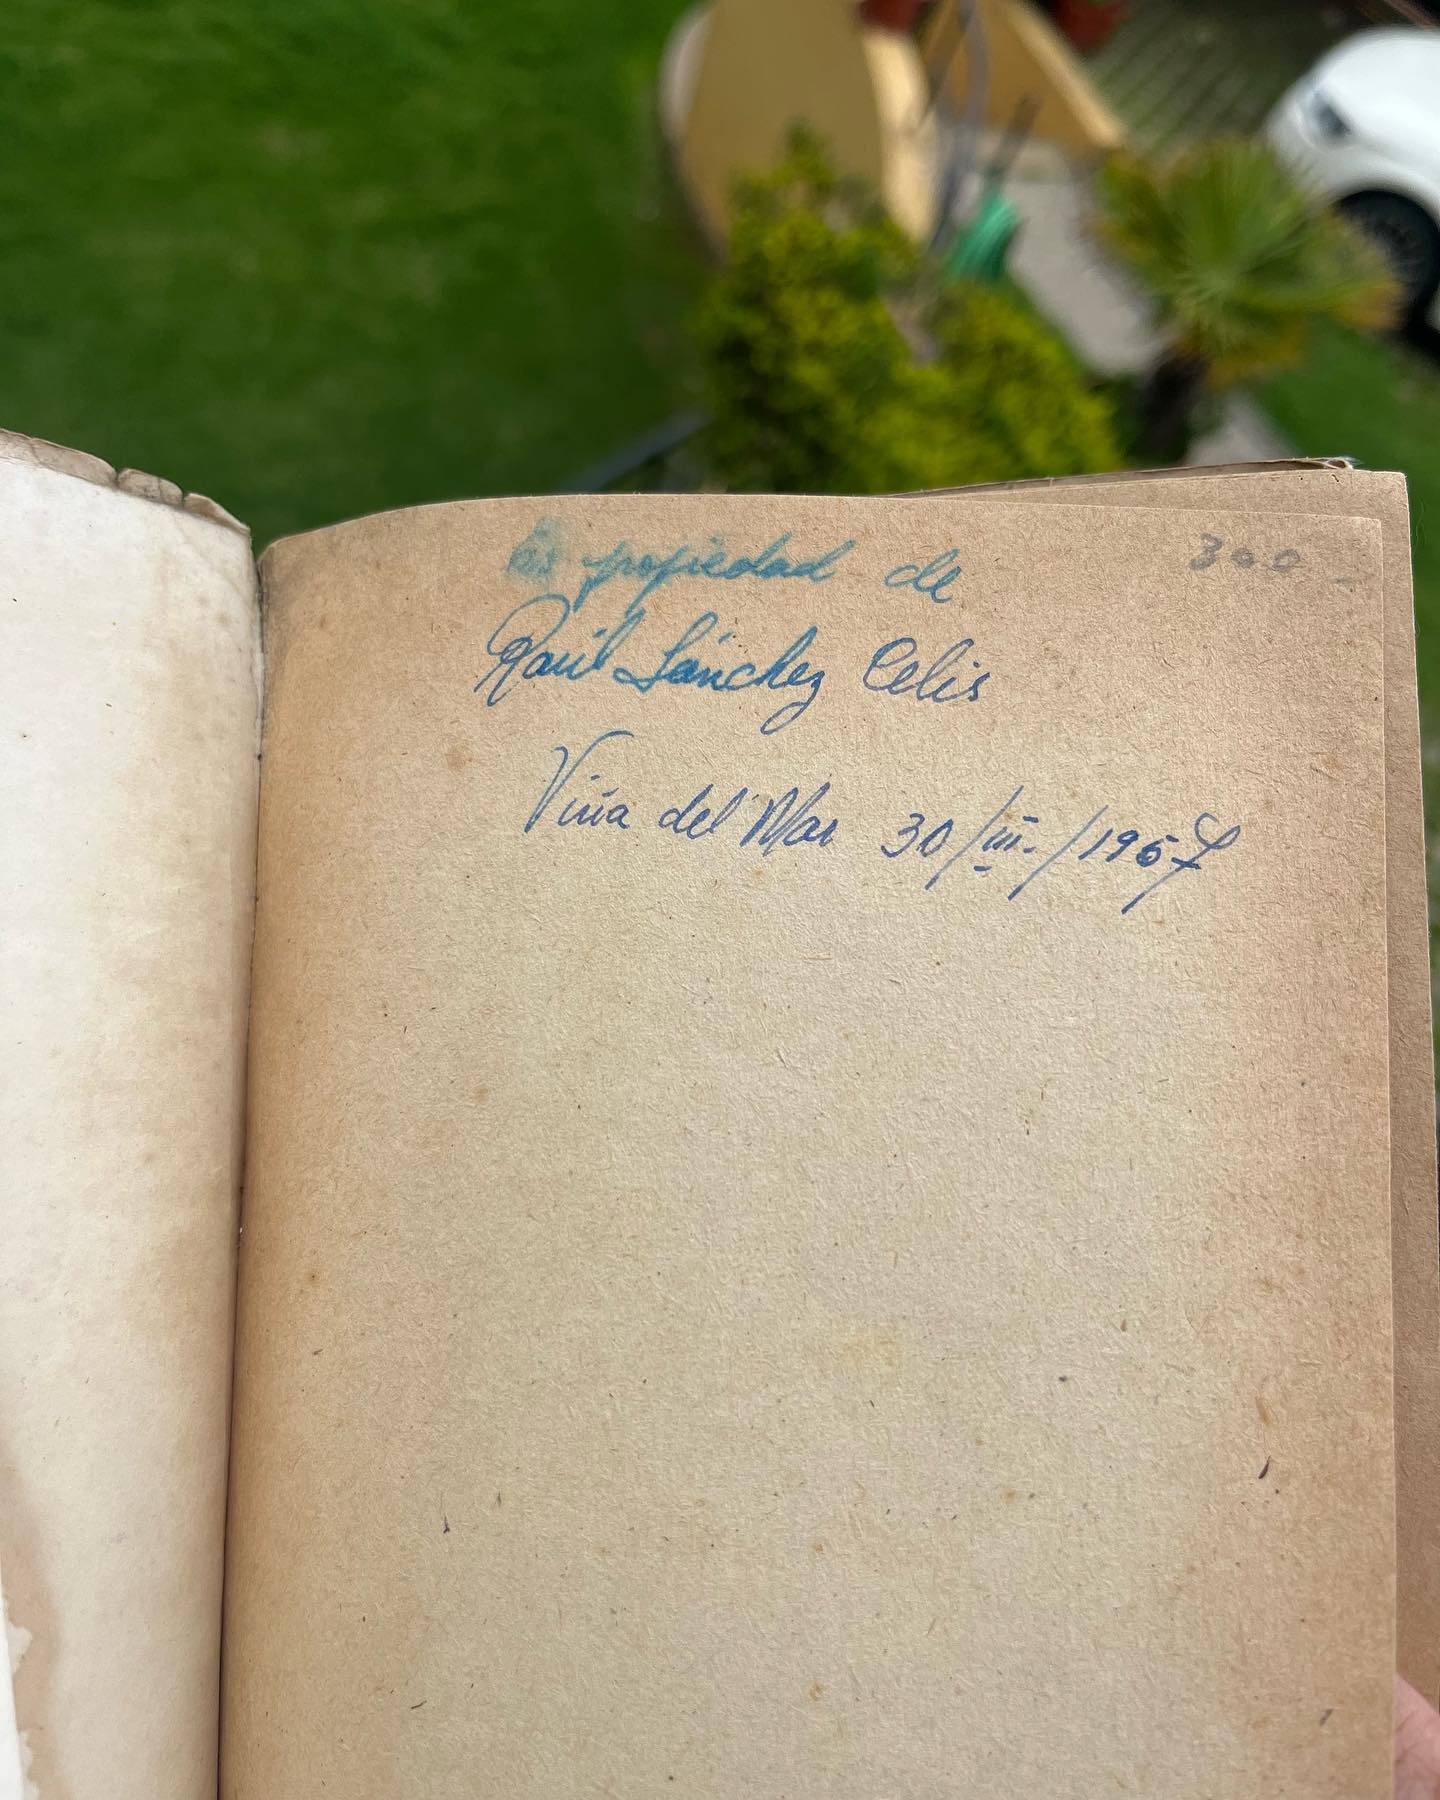 Es propiedad de
300
Raúl Sánchez Celis
Viña del Mar 30/III./1957